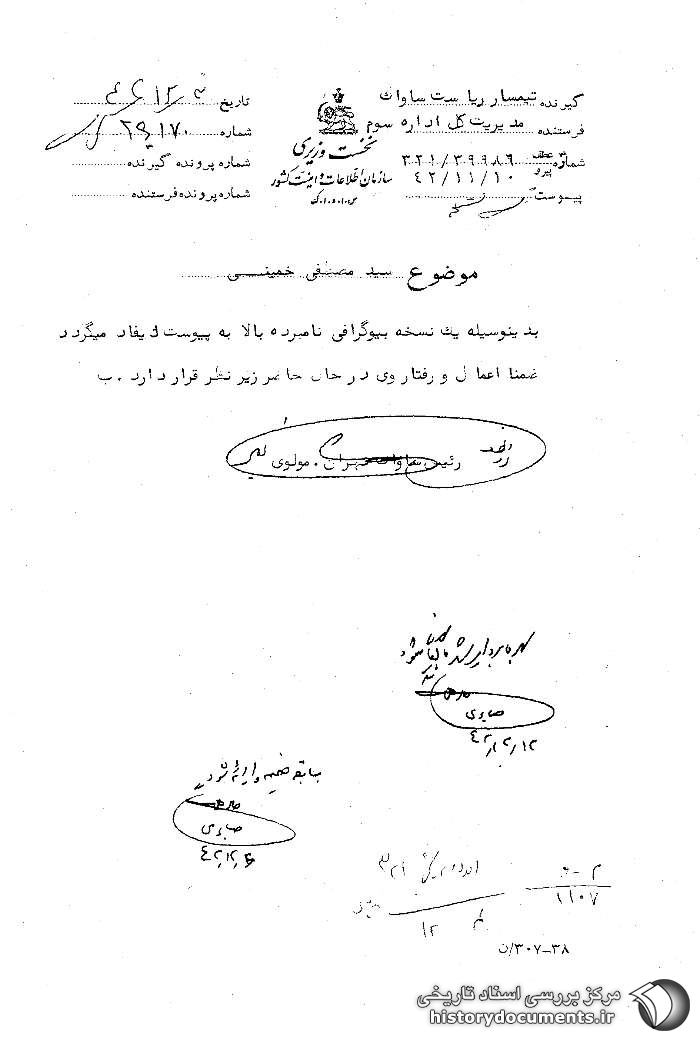 گیرنده تیمسار ریاست ساواک
فرستنده مدیریت کل اداره سوم
شماره عطف ۳۲۱/۳۹۹۸۶
پیرو ۴۲/۱۱/۱۰
پیوست
نخست وزیری
سازمان اطلاعات و امنیت کشور
س.ا.و.ا.ک
تاریخ
شماره ۲۹۱۷۰
شماره پرونده گیرنده
شماره پرونده فرستنده
موضوع سید مصطفی خمینی
بدینوسیله یک نسخه بیوگرافی نامبرده بالا به پیوست ایفاد میگردد
ضمنا اعمال و رفتار وی در حال حاضر زیر نظر قرار دارد . ب
رئیس ساواک تهران . مولوی
صابری
سابقه ضمیمه و ارائه شود
صابری
۱۱۰۷
۱۲
۳۰۷-۳۸/ن
مرکز بررسی اسناد تاریخی
historydocuments.ir